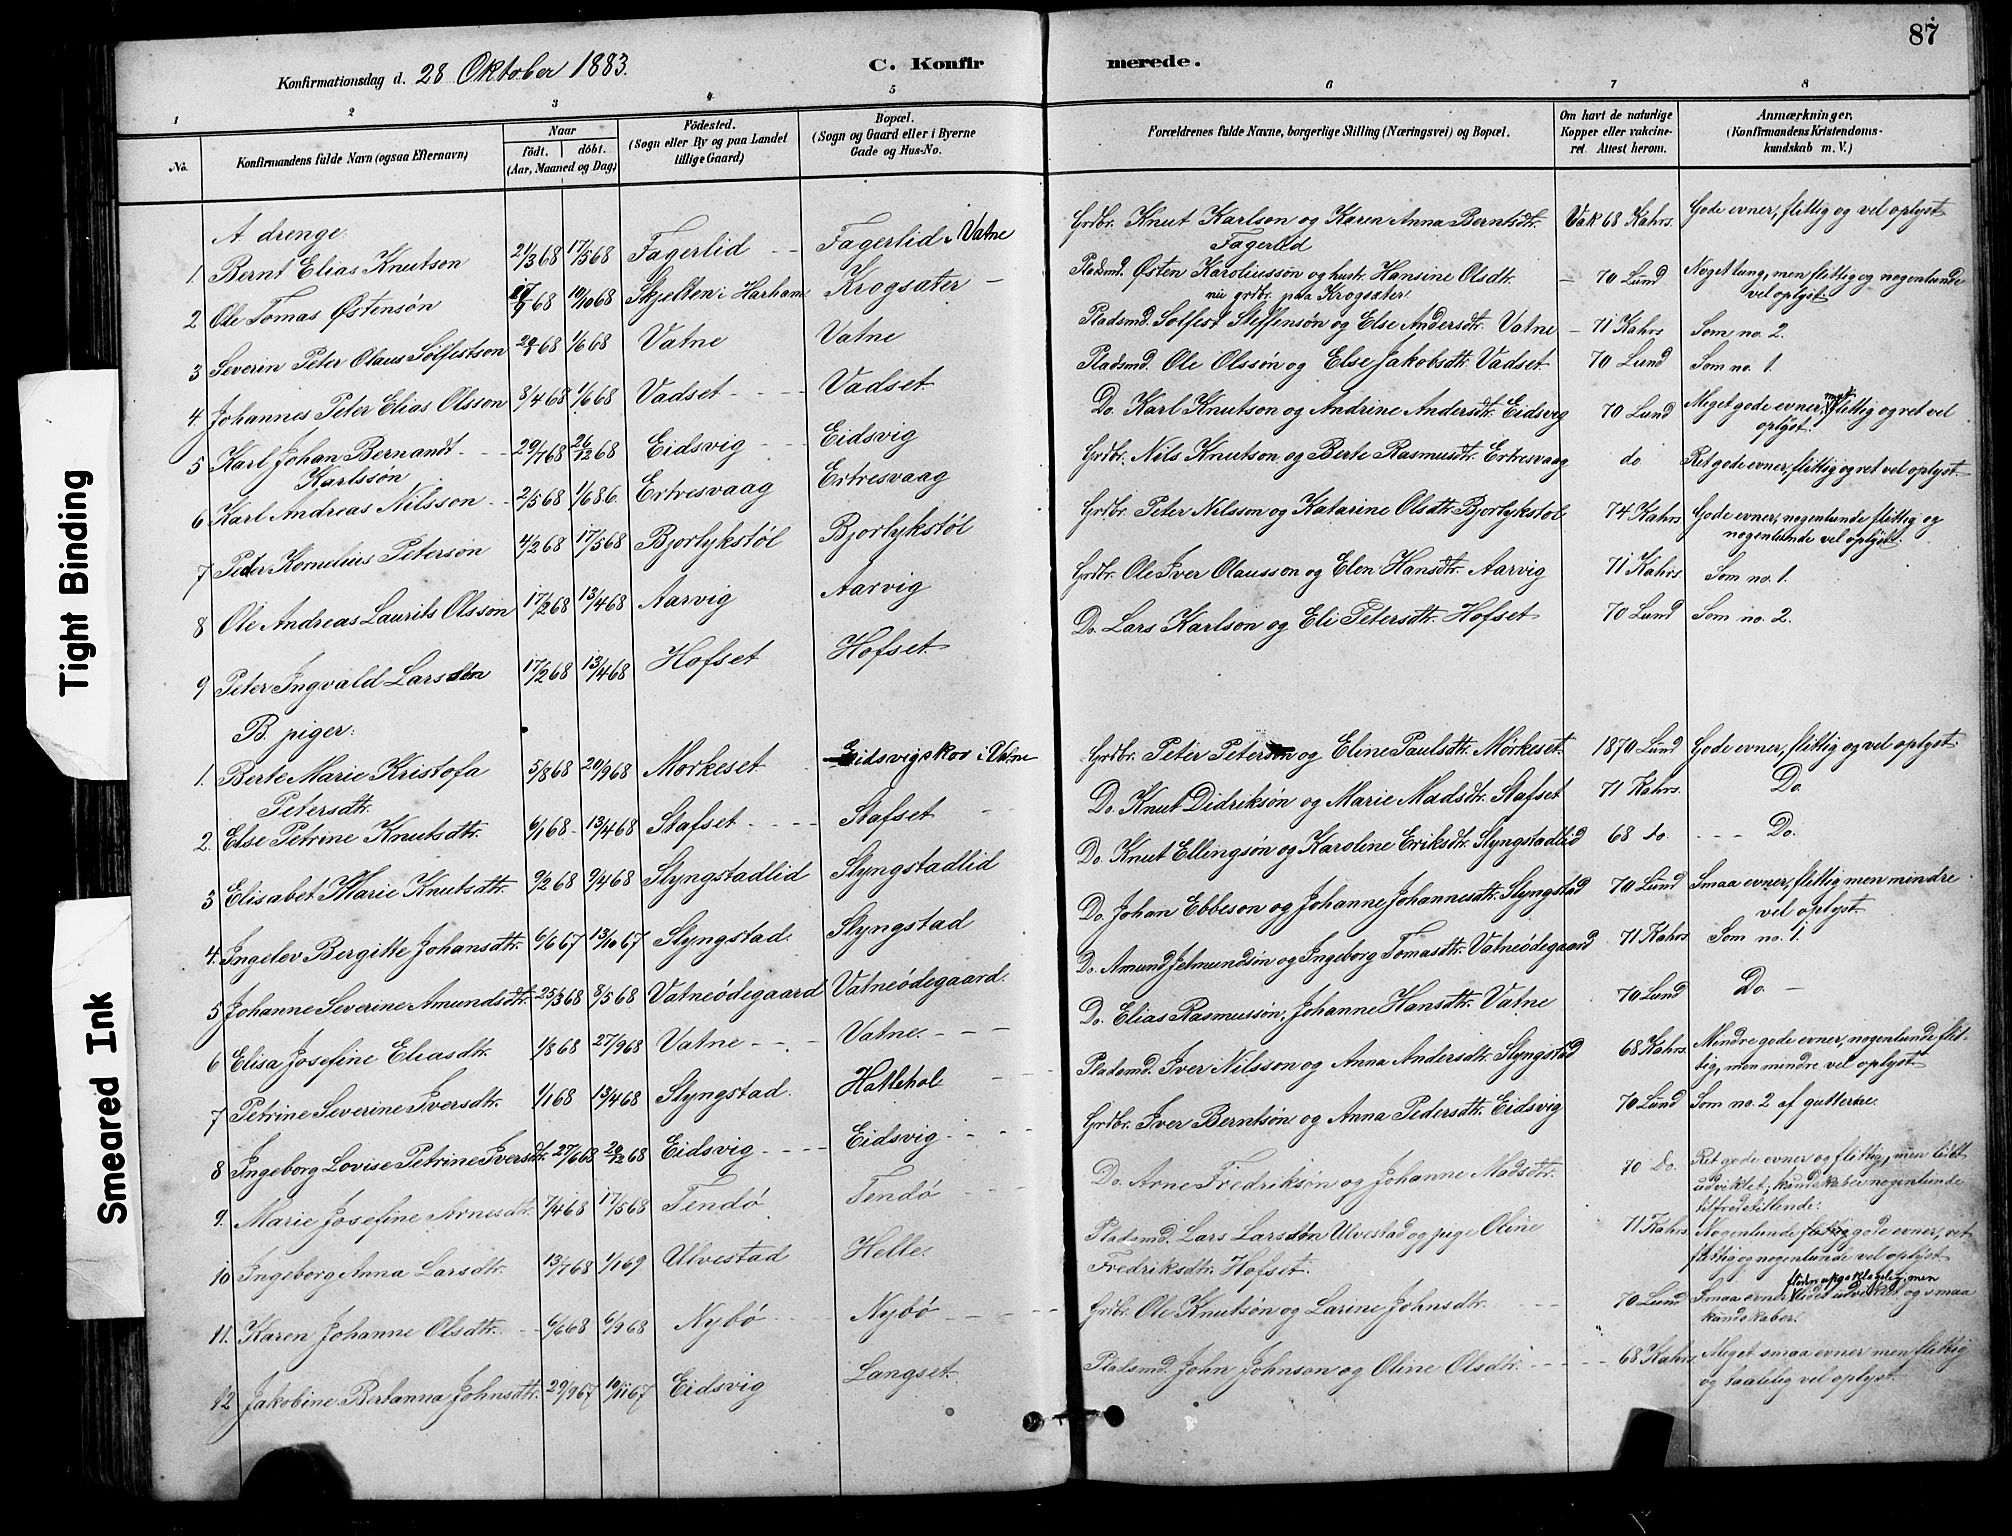 87
Konfirmationsdag d. 28 Oktober 1883.
C. Konfir merede.
1 2 3 4 5 6 7 8
No. Konfirmandens fulde Navn (ogsaa Efternavn) Naar født. døbt. (Aar, Maaned og Dag) Födested. (Sogn eller By og paa Landet tillige Gaard) Bopæl. (Sogn og Gaard eller i Byerne Gade og Hus-No. Forældrenes fulde Navne, borgerlige Stilling (Næringsvei) og Bopæl. Om havt de naturlige Kopper eller vakcineret. Attest herom. Anmærkninger. (Konfirmandens Kristendomskundskab m. V.)
A drenge:
1 Bernt Elias Knutson 21/3 68 17/5 68 Fagerlid Fagerlid i Vatne Grdbr. Knut Karlson og Karen Anna Berntsdtr. Fagerlid Vak 68 Kahrs. Gode evner, flittig og vel oplyst
2 Ole Tomas Østensøn 68 10/10 68 Skjelten i Harham Krogsæter Pladsmd. Østen Karoliussøn og hustr. Hansine Olsdtr. nu grdbr. paa Krogsæter. 70 Lund Noget tung, men flittig og nogenlunde vel oplyst.
3 Severin Peter Olaus Solfestson 68 1/6 68 Vatne Vatne Pladsmd. Solfest Steffensøn og Else Andersdtr. Vatne 71 Kahrs Som no. 2.
4 Johannes Peter Elias Olsson 8/4 68 1/6 68 Vadset Vadset Pladsmd. Ole Olssøn og Else Jakobsdtr. Vadset 70 Lund Som no. 1.
5 Karl Johan Bernandt Karlssøn 29/7 68 26/12 68 Eidsvig Eidsvig Do. Karl Knutson og Andrine Andersdtr. Eidsvig 70 Lund Meget gode evner, flittig og ret vel oplyst.
6 Karl Andreas Nilsson 2/5 68 1/6 86. Ertresvaag Ertresvaag Grdbr. Nils Knutson og Berte Rasmusdtr. Ertresvaag do Ret gode evner, flittig og ret vel oplyst
7 Peder Kornelius Petersøn 4/2 68 17/5 68 Bjorlykstøl Bjorlykstøl Grdbr. Peter Nilsson og Katarine Olsdtr. Bjorlykstøl 74 Kahrs Gode evner, nogenlunde flittig og nogenlunde vel oplyst.
8 Ole Andreas Laurits Olsson 17/2 68 13/4 68 Aarvig Aarvig Grdbr. Ole Iver Olausson og Elen Hansdtr. Aarvig 71 Kahrs Som no. 1.
9 Peter Ingvald Larssøn 17/2 68 13/4 68 Hofset Hofset Do. Lars Karlson og Eli Petersdtr. Hofset 70 Lund Som no. 2.
B piger:
1. Berte Marie Kristofa Petersdtr. 5/8 68 20/9 68 Morkeset Eidsvigskor i Vatne Grdbr. Peter Peterson og Eline Paulsdtr. Mørkeset. 1870 Lund Gode evner, flittig og vel oplyst
2. Else Petrine Knutsdtr. 6/1 68 13/4 68 Stafset Stafset Do. Knut Didriksøn og Marie Madsdtr. Stafset 71 Kahrs. Do.
3 Elisabet Marie Knutsdtr. 9/2 68 9/4 68 Slyngstadlid Slyngstadlid Do. Knut Ellingsøn og Karoline Eriksdtr. Slyngstadlid 68 do. Do.
4. Ingelev Bergitte Johansdtr. 6/6 67 13/10 67 Slyngstad. Slyngstad Do. Johan Ebbeson og Johanne Johannesdtr. Slyngstad 70 Lund Smaa evner, flittig men mindre vel oplyst.
5 Johanne Severine Amundsdtr. 25/3 68 8/5 68 Vatneødegaard Vatneødegaard. Do. Amund Jetmundsøn og Ingeborg Tomasdtr. Vatneødegaard 71 Kahrs. Som no. 1.
6 Elisa Josefine Eliasdtr. 1/8 68 27/9 68 Vatne Vatne. Do. Elias Rasmussøn, Johanne Hansdtr. Vatne 70 Lund Do.
7 Petrine Severine Iversdtr. 1/1 68 13/4 68 Slyngstad. Hallehol Pladsmd. Iver Nilsson og Anna Andersdtr. Slyngstad 68 Kahrs. Mindre gode evner, nogenlunde flittig, men mindre vel oplyst
8 Ingeborg Lovise Petrine Iversdtr. 27/6 68 20/12 68 Eidsvig Eidsvig Grdbr. Iver Berntsøn og Anna Pedersdtr. Eidsvig 70 Lund Som no. 2 af gutterne.
9. Marie Josefine Arnesdtr. 7/4 68 17/5 68 Tendø Tendø Do. Arne Fredriksøn og Johanne Madsdtr. 70 Do. Ret gode evner og flittig, men lidt udviklet; kundskaber nogenlunde tilfredstillende.
10 Ingeborg Anna Larsdtr. 13/7 68 1/1 69 Ulvestad Helle. Pladsmd. Lars Larssøn Ulvestad og pige Oline Fredriksdtr. Hofset. 71 Kahrs. Nogenlunde gode evner, ret flittig og nogenlunde vel oplyst
11. Karen Johanne Olsdtr. 6/6 68 6/9 68 Nybø Nybø Grdbr. Ole Knutsøn og Larine Johnsdtr. 70 Lund Smaa evner, lidet udviklet og smaa kundskaber.
12 Jakobine Bertanna Johnsdtr. 29/9 67 10/11 67 Eidsvig Langset. Pladsmd. John Johnson og Oline Olsdtr. 68 Kahrs. Meget smaa evner men flittig og taalelig vel oplyst.
Tight Binding
Smeared Ink